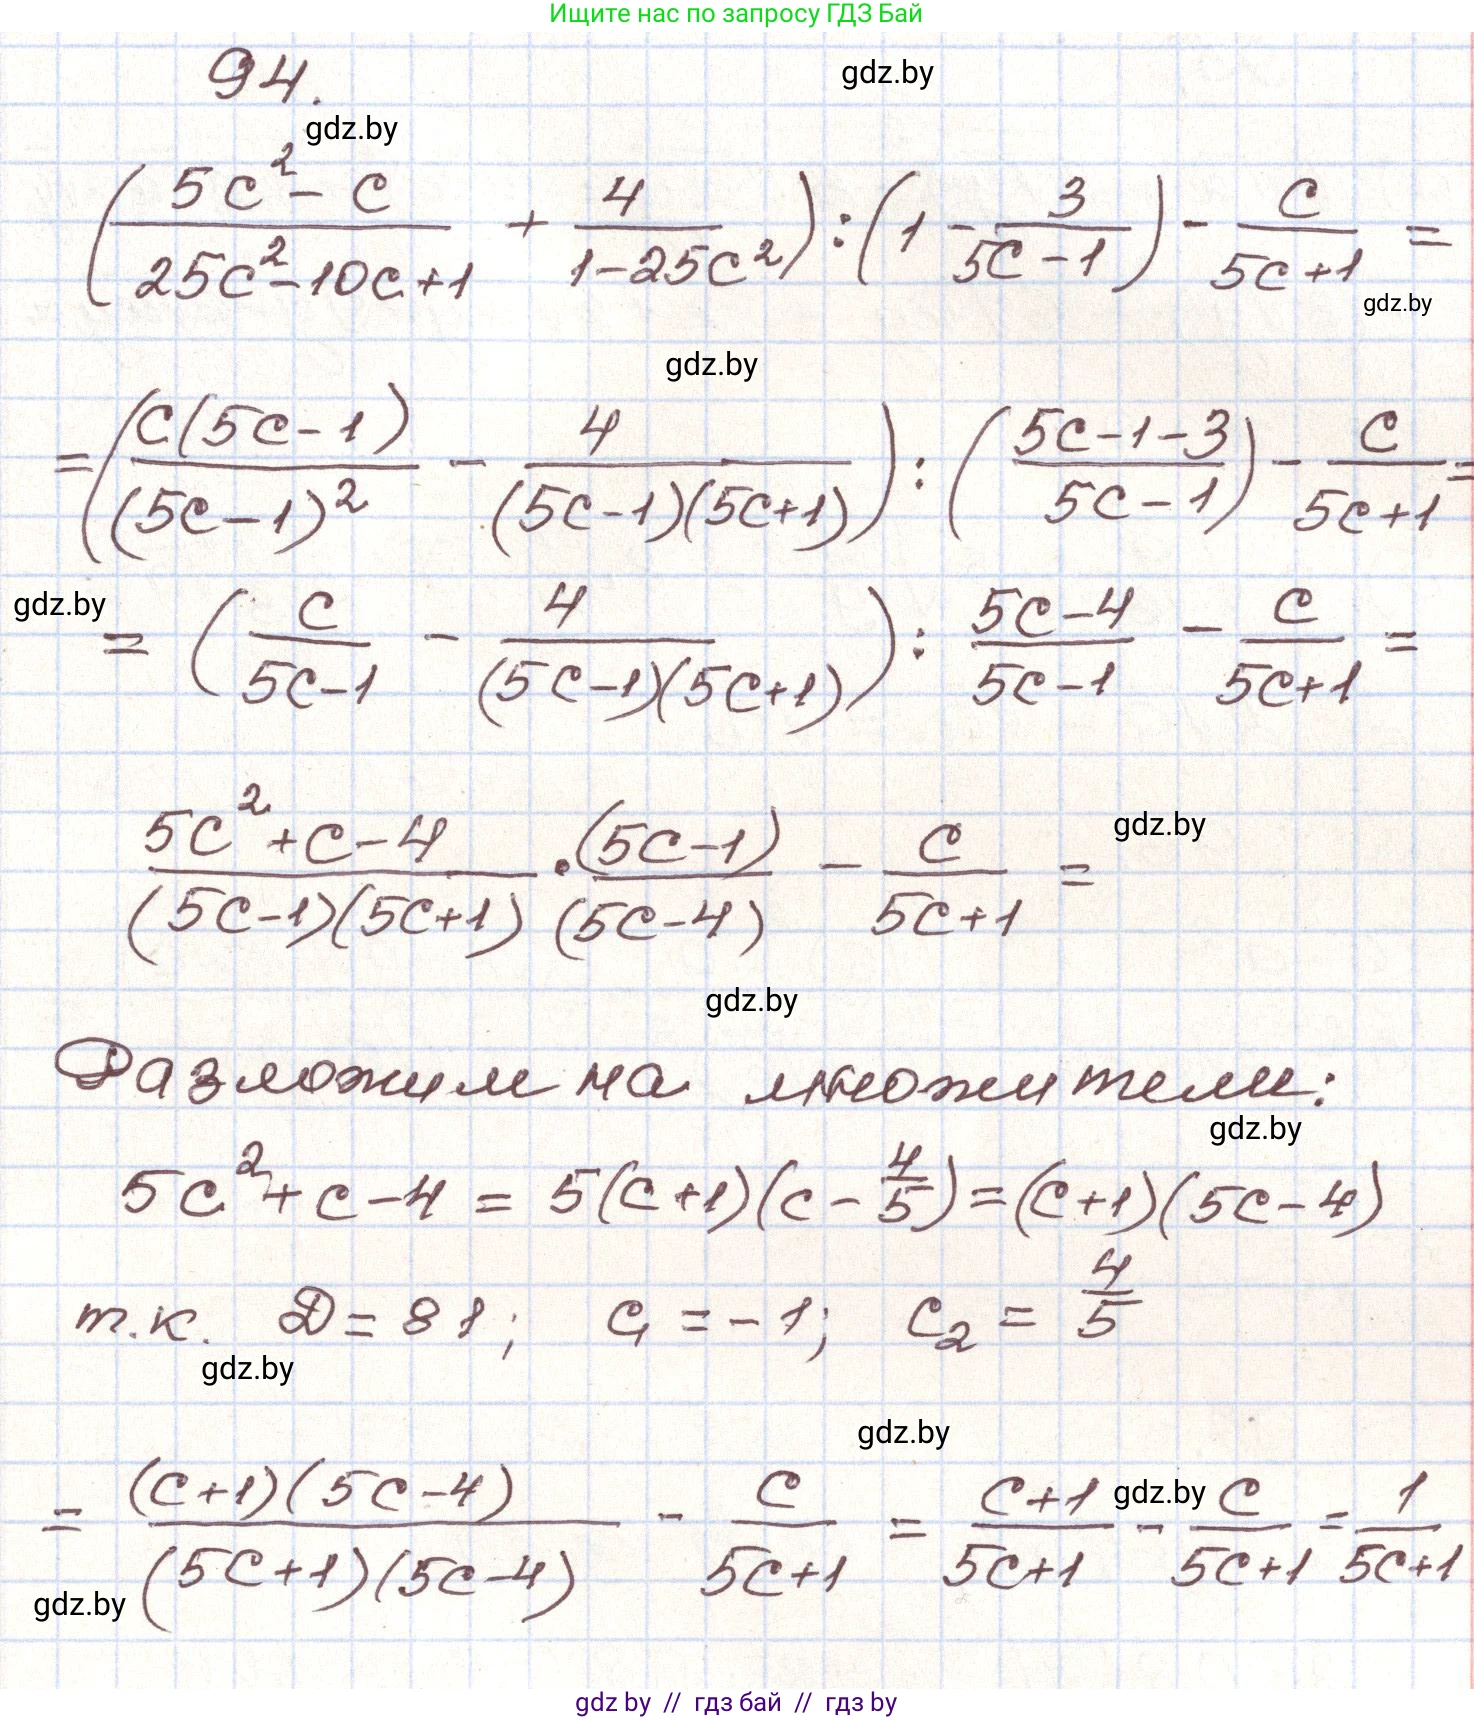 Ищите нас по запросу ГДЗ Бай
94.
gdz.by
gdz.by
(5c² - c)/(25c² - 10c + 1) + 4/(1 - 25c²)) : (1 - 3/(5c - 1)) - c/(5c + 1) =
gdz.by
gdz.by
= (c(5c - 1)/(5c - 1)² - 4/((5c - 1)(5c + 1))) : ((5c - 1 - 3)/(5c - 1)) - c/(5c + 1) =
gdz.by
= (c/(5c - 1) - 4/((5c - 1)(5c + 1))) : (5c - 4)/(5c - 1) - c/(5c + 1) =
(5c² + c - 4)/((5c - 1)(5c + 1)) · (5c - 1)/(5c - 4) - c/(5c + 1) =
gdz.by
gdz.by
Разложим на множители:
gdz.by
5c² + c - 4 = 5(c + 1)(c - 4/5) = (c + 1)(5c - 4)
т.к. D = 81; c₁ = -1; c₂ = 4/5
gdz.by
gdz.by
= (c + 1)(5c - 4)/((5c + 1)(5c - 4)) - c/(5c + 1) = (c + 1)/(5c + 1) - c/(5c + 1) = 1/(5c + 1)
gdz.by
gdz.by
gdz by // гдз бай // гдз by